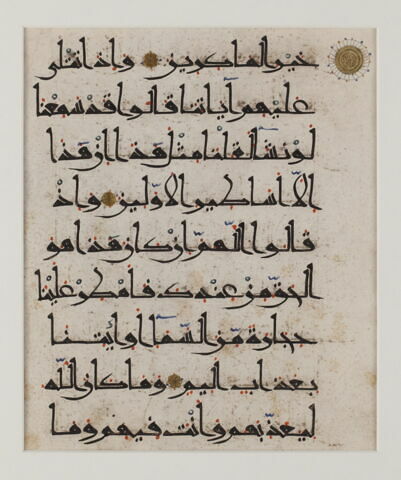 خير الماكرين واذا تتلى
عليهم آياتنا قالوا قد سمعنا
لو نشاء لقلنا مثل هذا ان هذا
الا اساطير الاولين واذ
قالوا اللهم ان كان هذا هو
الحق من عندك فامطر علينا
حجارة من السماء او ائتنا
بعذاب اليم وما كان الله
ليعذبهم وانت فيهم وما